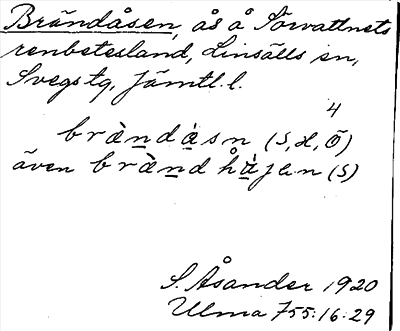 Brändåsen, ås å Sörvattnets
renbetesland, Linsälls sn,
Svegs tg, Jämtl. l.
4
brä̀ndåsn (S, H, Ö)
även brä̀ndhå̀jen (S)
S. Åsander 1920
Ulma 755:16:29